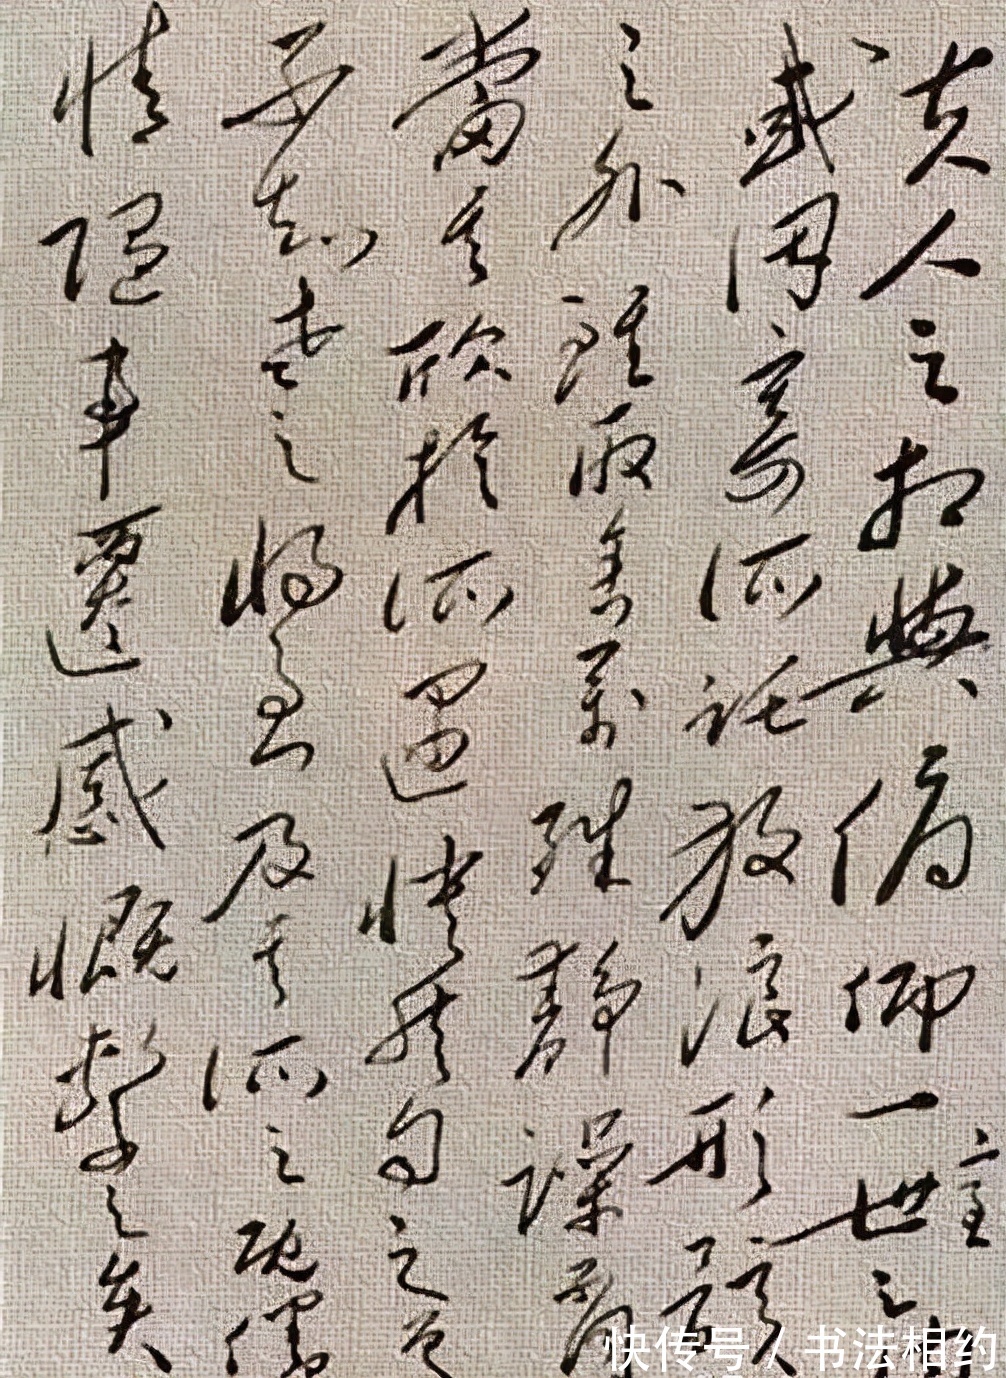 夫人之相與俯仰一世之
或因寄所託放浪形骸
之外雖取舍萬殊靜躁不同
當其欣於所遇怏然自足
不知老之將至及其所之既倦
情隨事遷感慨係之矣
快传号/书法相约